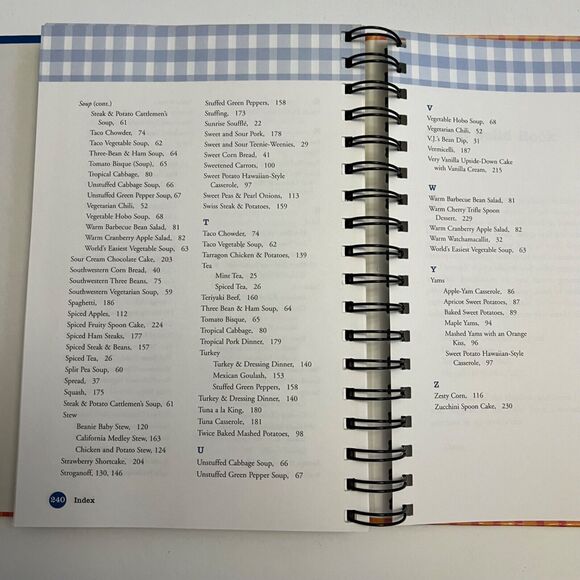 Soup (cont.)
Steak & Potato Cattlemen's
Soup, 61
Taco Chowder, 74
Taco Vegetable Soup, 62
Three-Bean & Ham Soup, 64
Tomato Bisque (Soup), 65
Tropical Cabbage, 80
Unstuffed Cabbage Soup, 66
Unstuffed Green Pepper Soup, 67
Vegetarian Chili, 52
Vegetable Hobo Soup, 68
Warm Barbecue Bean Salad, 81
Warm Cranberry Apple Salad, 82
World's Easiest Vegetable Soup, 63
Sour Cream Chocolate Cake, 203
Southwestern Corn Bread, 40
Southwestern Three Beans, 75
Southwestern Vegetarian Soup, 59
Spaghetti, 186
Spiced Apples, 112
Spiced Fruity Spoon Cake, 224
Spiced Ham Steaks, 177
Spiced Steak & Beans, 157
Spiced Tea, 26
Split Pea Soup, 60
Spread, 37
Squash, 175
Steak & Potato Cattlemen's Soup, 61
Stew
Beanie Baby Stew, 120
California Medley Stew, 163
Chicken and Potato Stew, 124
Strawberry Shortcake, 204
Stroganoff, 130, 146
Stuffed Green Peppers, 158
Stuffing, 173
Sunrise Soufflé, 22
Sweet and Sour Pork, 178
Sweet and Sour Teenie-Weenies, 29
Sweet Corn Bread, 41
Sweetened Carrots, 100
Sweet Potato Hawaiian-Style
Casserole, 97
Sweet Peas & Pearl Onions, 113
Swiss Steak & Potatoes, 159
T
Taco Chowder, 74
Taco Vegetable Soup, 62
Tarragon Chicken & Potatoes, 139
Tea
Mint Tea, 25
Spiced Tea, 26
Teriyaki Beef, 160
Three Bean & Ham Soup, 64
Tomato Bisque, 65
Tropical Cabbage, 80
Tropical Pork Dinner, 179
Turkey
Turkey & Dressing Dinner, 140
Mexican Goulash, 153
Stuffed Green Peppers, 158
Turkey & Dressing Dinner, 140
Tuna a la King, 180
Tuna Casserole, 181
Twice Baked Mashed Potatoes, 98
U
Unstuffed Cabbage Soup, 66
Unstuffed Green Pepper Soup, 67
240 Index
V
Vegetable Hobo Soup, 68
Vegetarian Chili, 52
V.J.'s Bean Dip, 31
Vermicelli, 187
Very Vanilla Upside-Down Cake
with Vanilla Cream, 215
W
Warm Barbecue Bean Salad, 81
Warm Cherry Trifle Spoon
Dessert, 229
Warm Cranberry Apple Salad, 82
Warm Watchamacallit, 32
World's Easiest Vegetable Soup, 63
Y
Yams
Apple-Yam Casserole, 86
Apricot Sweet Potatoes, 87
Baked Sweet Potatoes, 89
Maple Yams, 94
Mashed Yams with an Orange
Kiss, 96
Sweet Potato Hawaiian-Style
Casserole, 97
Z
Zesty Corn, 116
Zucchini Spoon Cake, 230